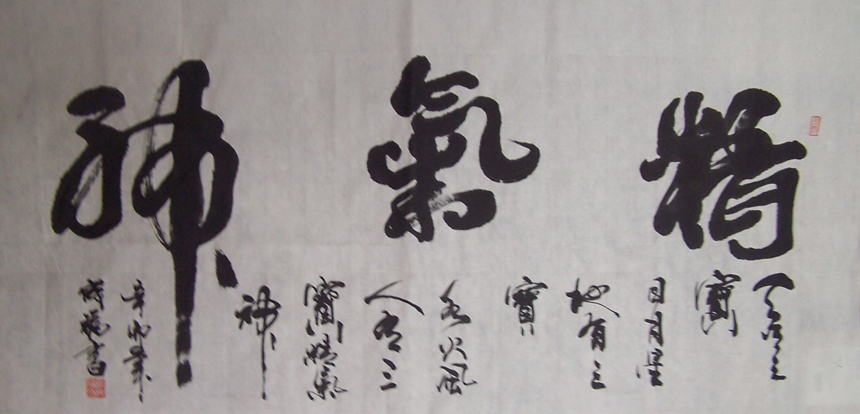 精氣神
天有三
寶
日月星
地有三
寶
水火風
人有三
寶精氣
神
辛卯年
書